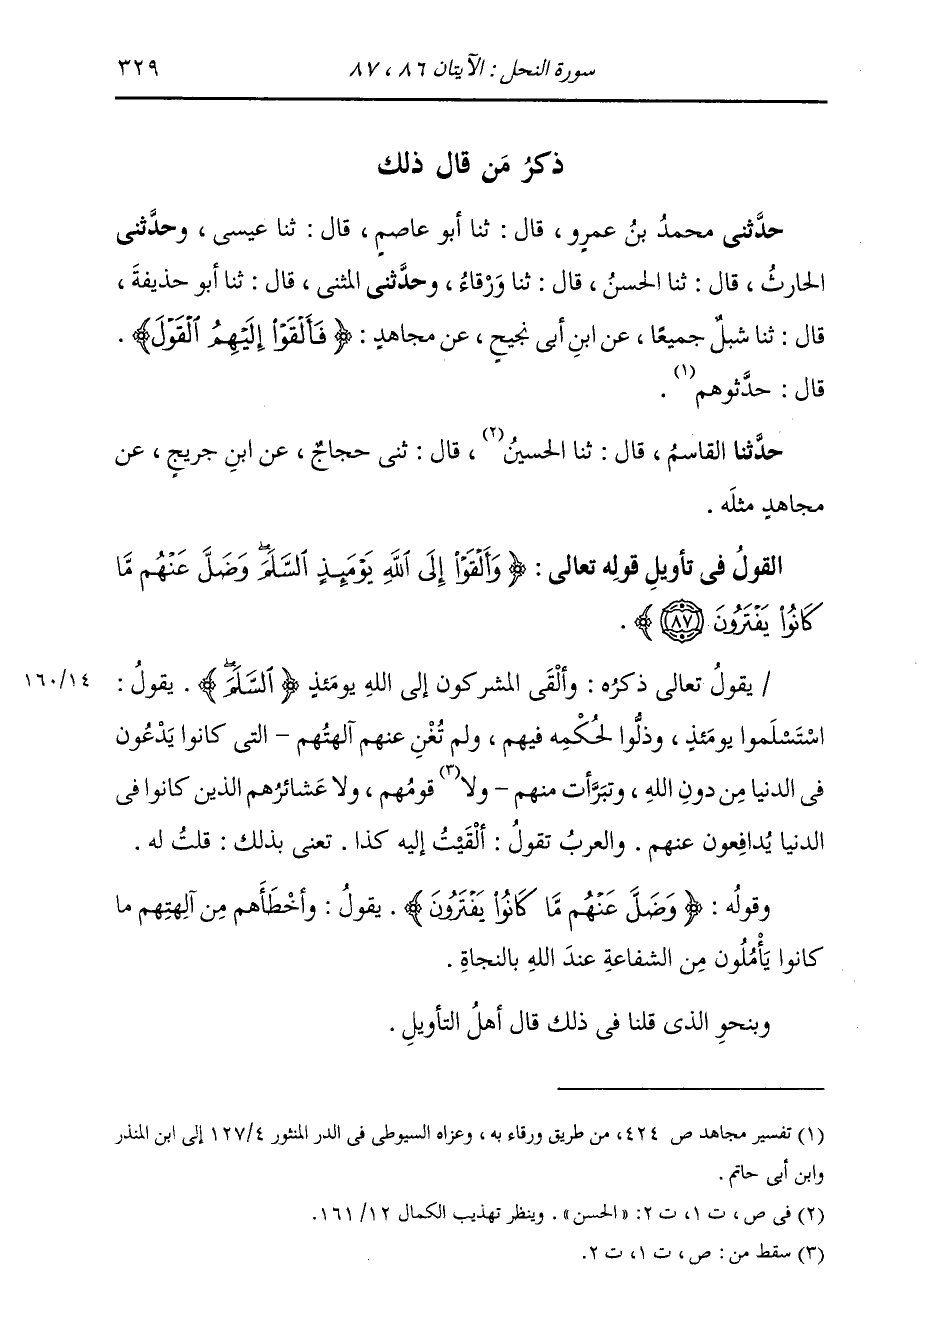 سورة النحل : الآيتان ٨٦ ، ٨٧
٣٢٩
ذكرُ مَن قال ذلك
حدَّثنى محمدُ بنُ عمرٍو ، قال : ثنا أبو عاصمٍ ، قال : ثنا عيسى ، وحدَّثنى
الحارثُ ، قال : ثنا الحسنُ ، قال : ثنا وَرْقاءُ ، وحدَّثنى المثنى ، قال : ثنا أبو حذيفةَ ،
قال : ثنا شبلٌ جميعًا ، عن ابنِ أبى نجيحٍ ، عن مجاهدٍ : ﴿ فَأَلْقَوْا۟ إِلَيْهِمُ ٱلْقَوْلَ﴾ .
قال : حدَّثوهم(١) .
حدَّثنا القاسمُ ، قال : ثنا الحسينُ(٢) ، قال : ثنى حجاجٌ ، عن ابنِ جريجٍ ، عن
مجاهدٍ مثلَه .
القولُ فى تأويلِ قولِه تعالى : ﴿ وَأَلْقَوْا۟ إِلَى ٱللَّهِ يَوْمَئِذٍ ٱلسَّلَمَ ۖ وَضَلَّ عَنْهُم مَّا
كَانُوا۟ يَفْتَرُونَ ٨٧ ﴾ .
/ يقولُ تعالى ذكرُه : وألْقَى المشركون إلى اللهِ يومَئذٍ ﴿ ٱلسَّلَمَ ۖ ﴾ . يقولُ :
١٦٠/١٤
اسْتَسْلَموا يومَئذٍ ، وذلُّوا لحُكْمِه فيهم ، ولم تُغْنِ عنهم آلهتُهم – التى كانوا يَدْعُون
فى الدنيا مِن دونِ اللهِ ، وتبَرَّأت منهم – ولا(٣) قومُهم ، ولا عَشائرُهم الذين كانوا فى
الدنيا يُدافِعون عنهم . والعربُ تقولُ : ألْقَيْتُ إليه كذا . تعنى بذلك : قلتُ له .
وقولُه : ﴿ وَضَلَّ عَنْهُم مَّا كَانُوا۟ يَفْتَرُونَ ﴾ . يقولُ : وأخْطَأَهم مِن آلِهتِهم ما
كانوا يَأْمُلُون مِن الشفاعةِ عندَ اللهِ بالنجاةِ .
وبنحوِ الذى قلنا فى ذلك قال أهلُ التأويلِ .
(١) تفسير مجاهد ص ٤٢٤، من طريق ورقاء به ، وعزاه السيوطى فى الدر المنثور ١٢٧/٤ إلى ابن المنذر
وابن أبى حاتم .
(٢) فى ص ، ت ١، ت ٢: «الحسن» . وينظر تهذيب الكمال ١٢/ ١٦١.
(٣) سقط من : ص ، ت ١، ت ٢.